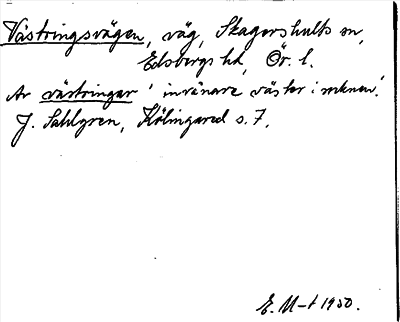 Västringsvägen, väg, Skagershults sn,
Edsbergs hd, Ör. l.
Av västringar 'invånare väster i socknen'.
J. Sahlgren, Kölingared s. 7.
E. M-t 1950.